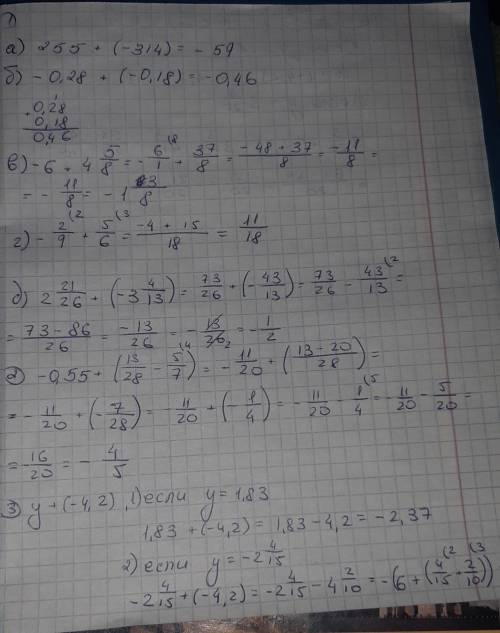 1)
а) 255 + (-314) = - 59
б) - 0,28 + (-0,18) = -0,46
+ 0,28
0,18
0,46
в) -6 + 4 5/8 = - 6/1 (8 + 37/8 = -48 + 37/8 = -11/8 =
= - 11/8 = - 1 3/8
г) - 2/9 (2 + 5/6 (3 = -4 + 15/18 = 11/18
д) 2 21/26 + (-3 4/13) = 73/26 + (- 43/13) = 73/26 - 43/13 (2 =
= 73-86/26 = -13/26 = - 13/26 2 = - 1/2
2) -0,55 + (13/28 - 5/7 (4) = - 11/20 + (13-20/28) =
= - 11/20 + (- 7/28) = - 11/20 + (- 1/4) = - 11/20 - 1/4 (5 = - 11/20 - 5/20 =
= - 16/20 = - 4/5
3) y + (-4,2), 1) если y = 1,83
1,83 + (-4,2) = 1,83 - 4,2 = -2,37
2) если y = -2 4/15
-2 4/15 + (-4,2) = -2 4/15 - 4 2/10 = -(6 + (4/15 (2 + 2/10 (3))